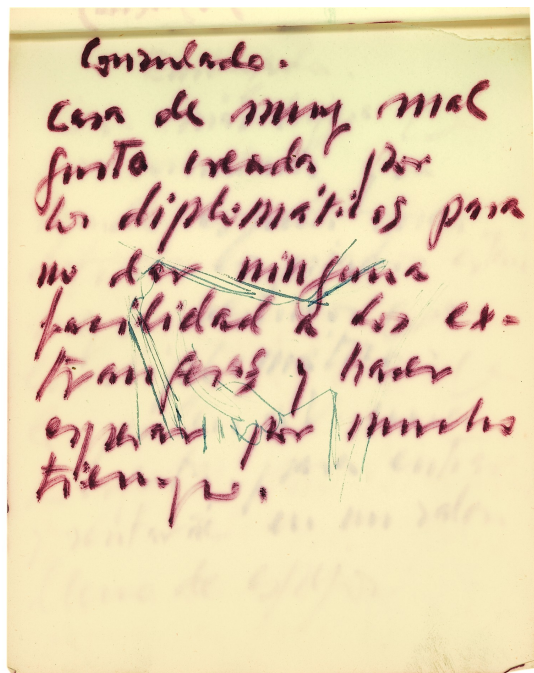 Consulado.
Casa de muy mal
gusto creada por
los diplomáticos para
no dar ninguna
facilidad a los ex-
tranjeros y hacer
esperar por mucho
tiempo.